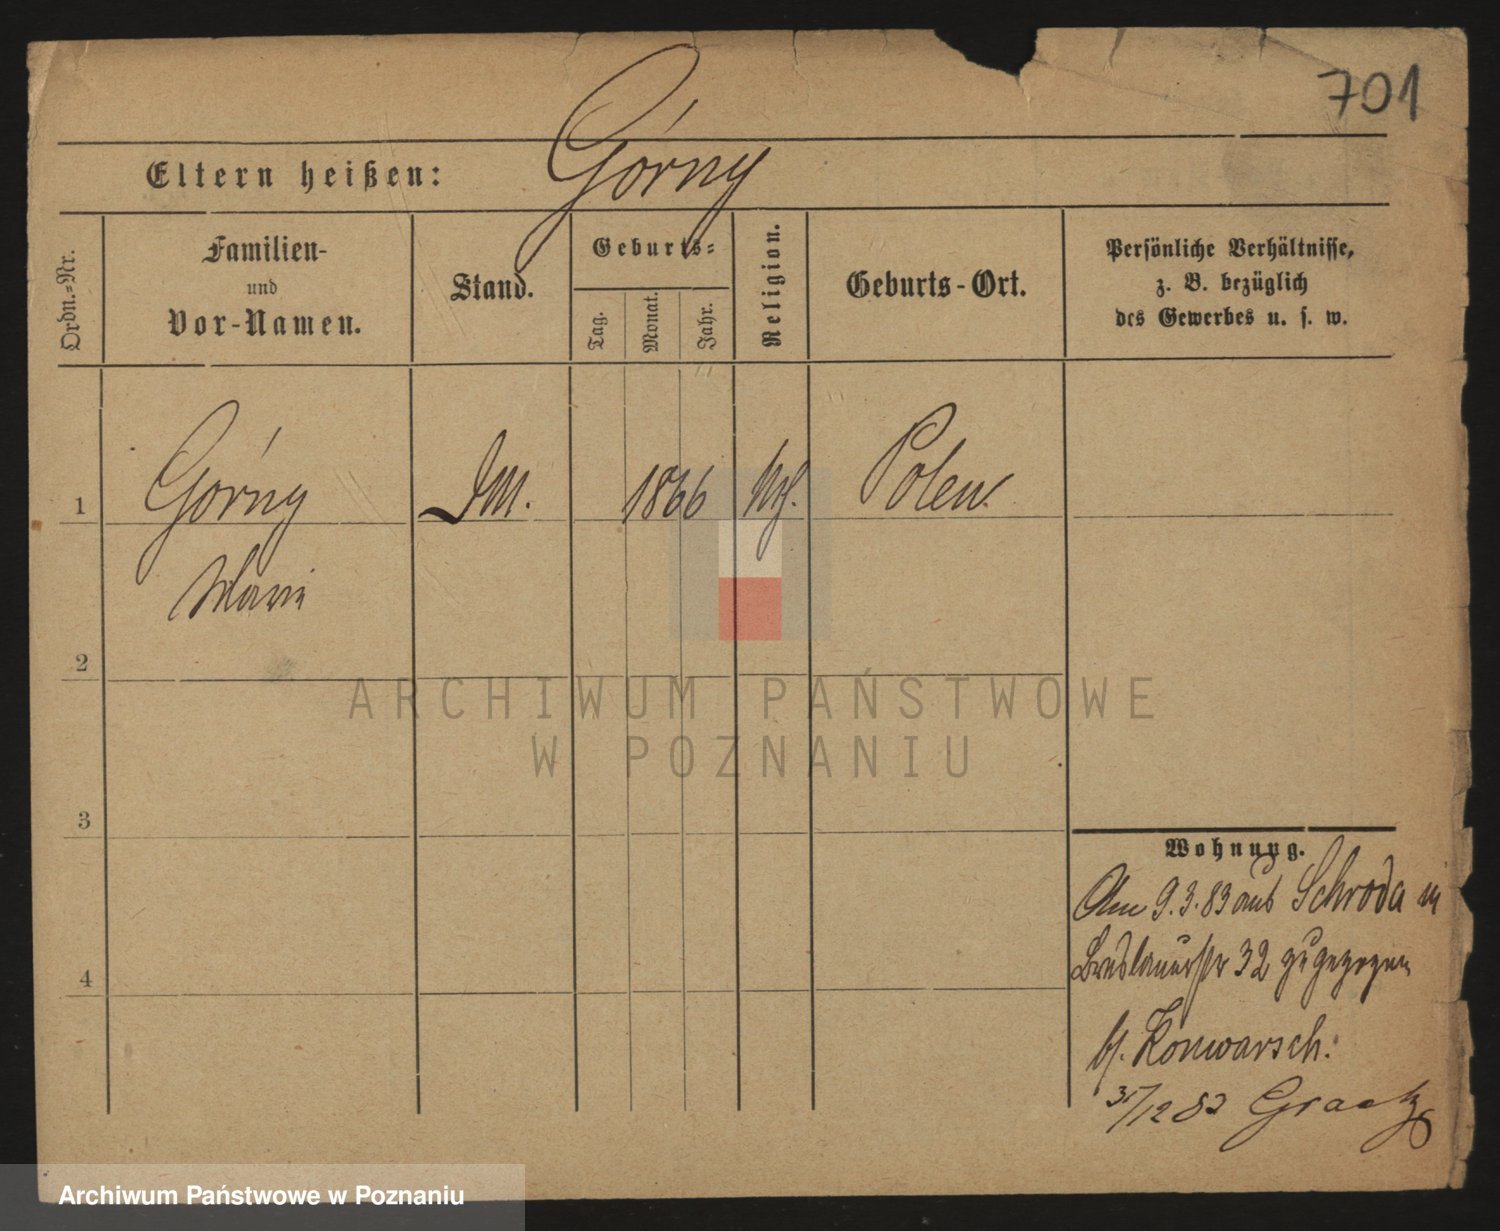 701
Górny
Eltern heißen:
Ordn.=Nr.
Familien-
und
Vor-Namen.
Stand.
Geburts=
Tag.
Monat.
Jahr.
Religion.
Geburts-Ort.
Persönliche Verhältnisse,
z. B. bezüglich
des Gewerbes u. s. w.
1
Górny
1866
Polen.
Marie
2
3
4
ARCHIWUM PAŃSTWOWE
W POZNANIU
Wohnung.
Am 9.3.83 aus Schroda in
Breslauerstr 32 zugezogen
b/. Konwarsch.
31/12 83 Graetz
Archiwum Państwowe w Poznaniu